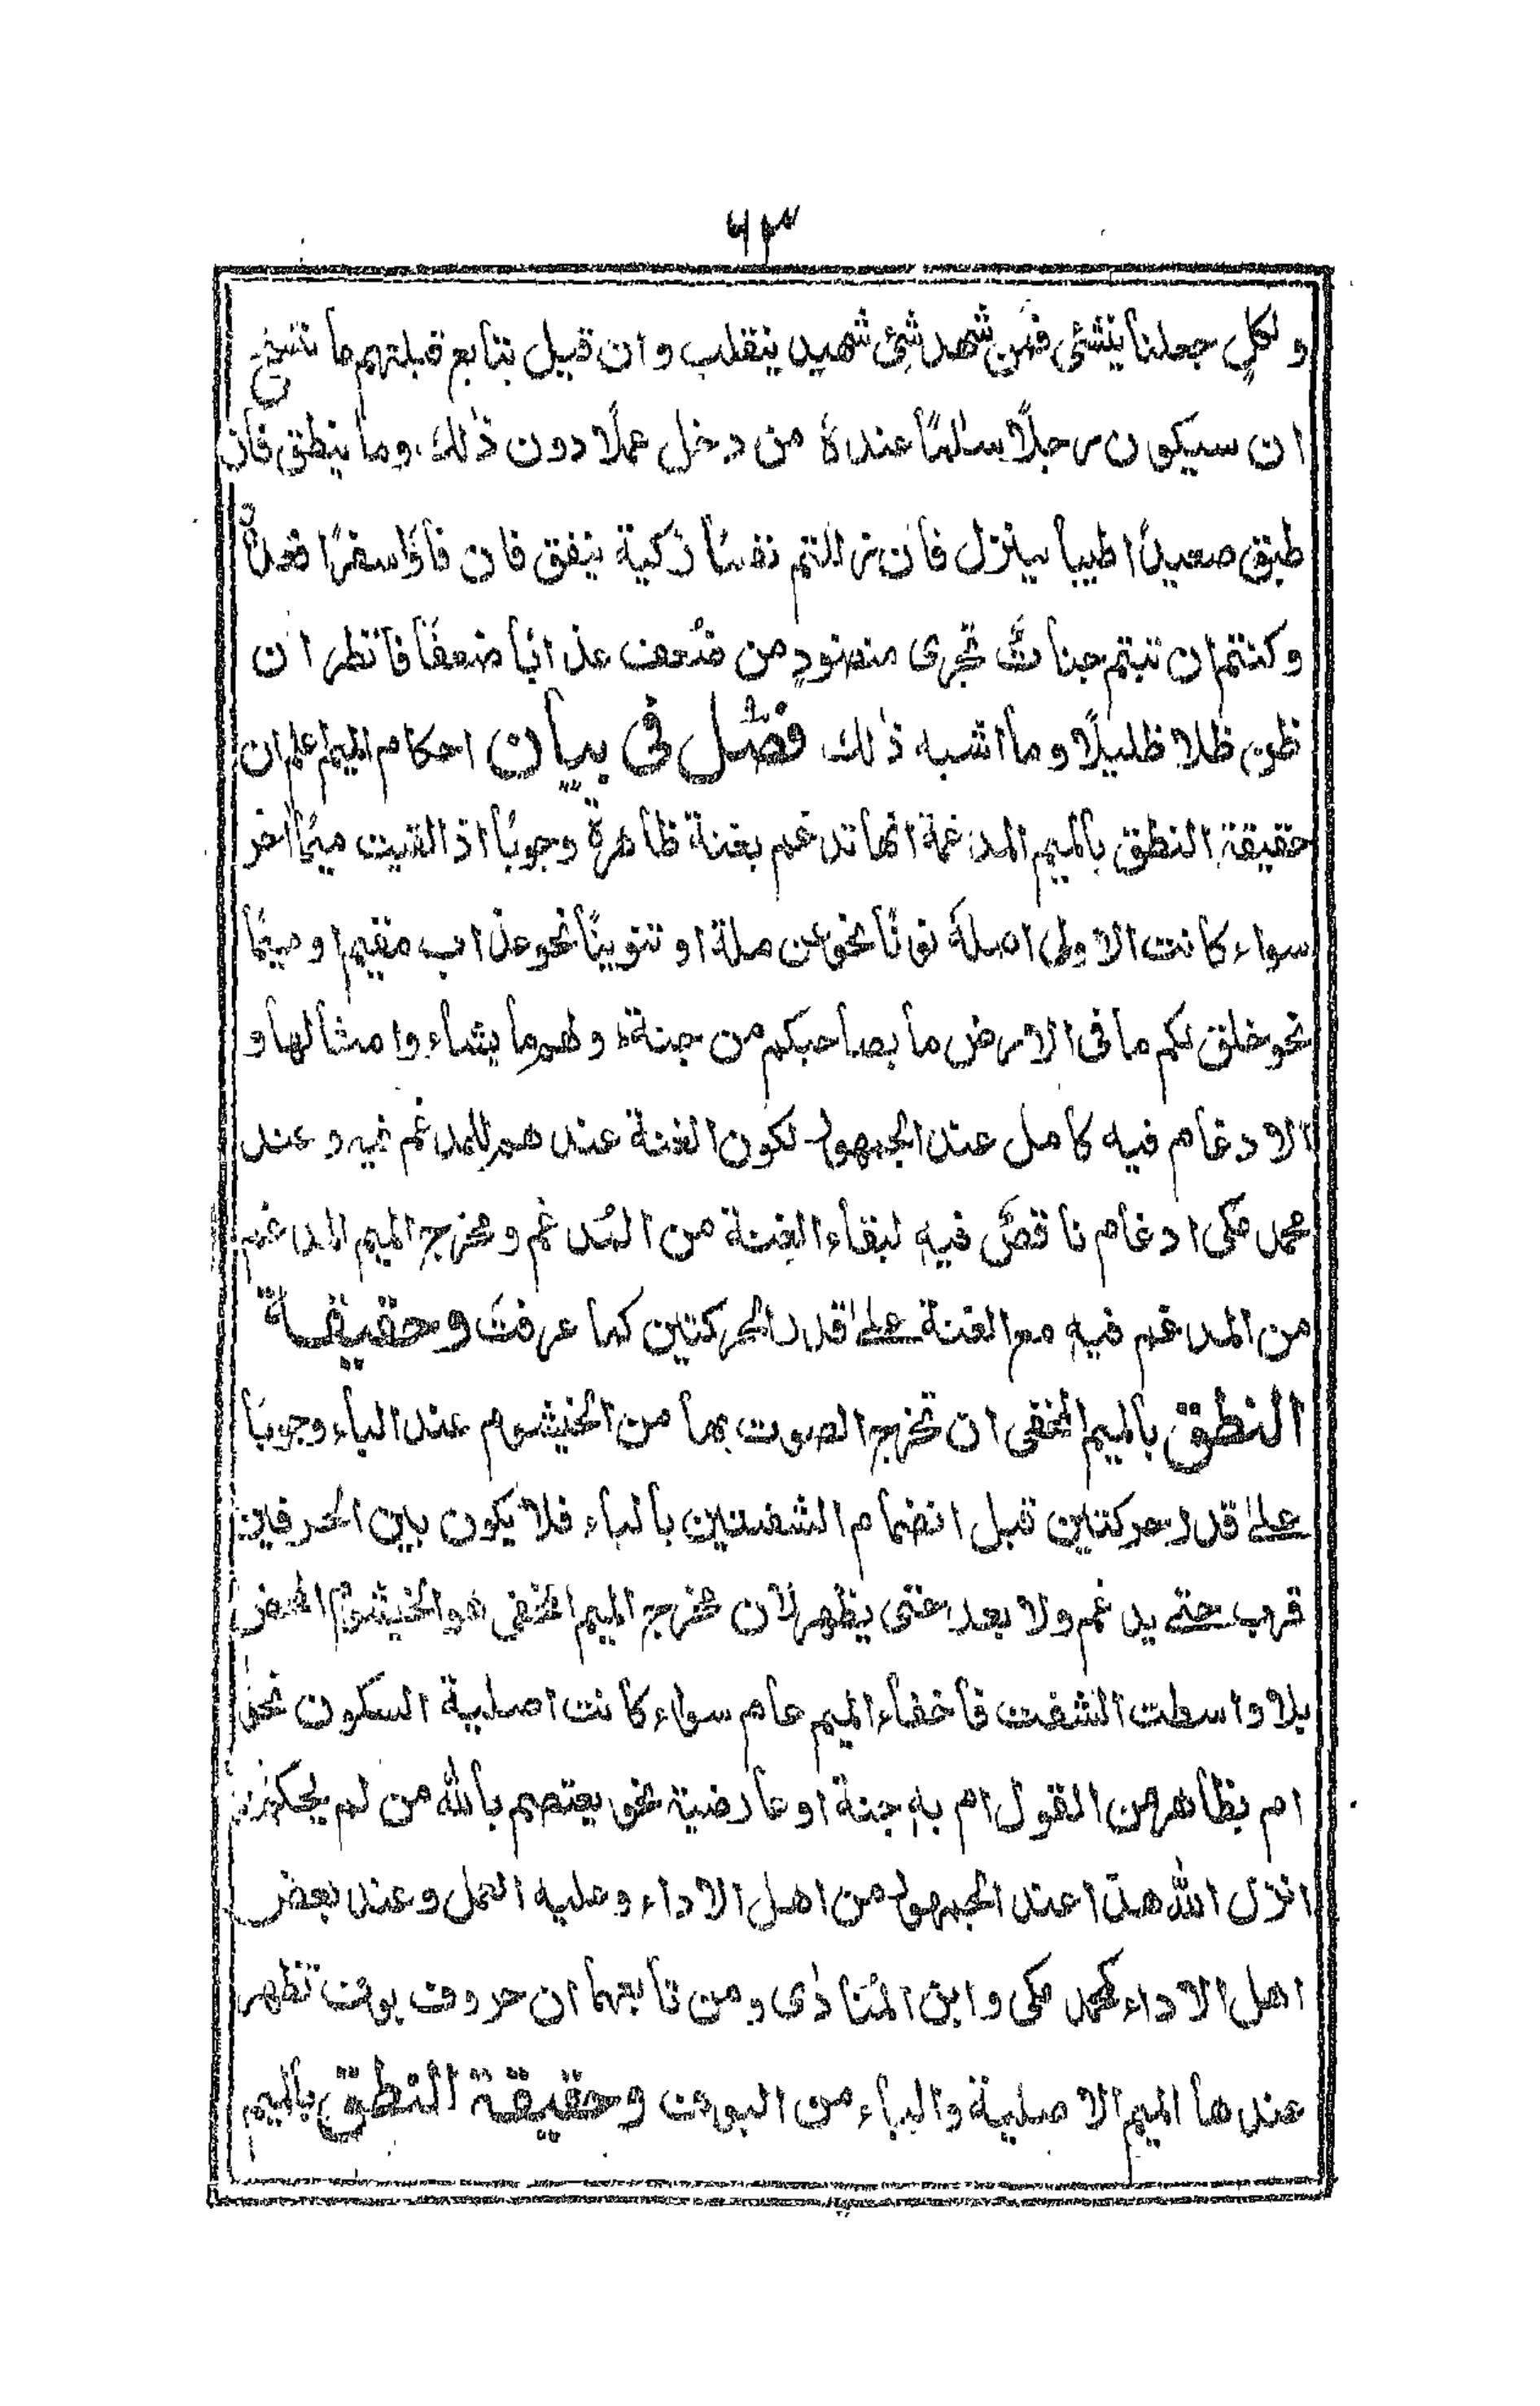 ٦٣
ولكلٍ جعلنا ينشئ فمن شهد شئ شهيد ينقلب وان قبيل بتابع قبلتهم ما ننسخ
ان سيكون رجلًا سلمًا عنده من دخل عملًا دون ذٰلك، وما ينطق فان
طبق صعيدًا طيبا ينزل فان زللتم نفسًا زكية ينفق فان فاؤا سفرًا فعدةٌ
وكنتم ان تبتم جناتٌ تجرى منضودٍ من ضُعف عذابًا ضعفًا فانظر ان
ظن ظلا ظليلًا وما اشبه ذٰلك فصل فى بيان احكام الميم اعلم ان
حقيقة النطق بالميم المدغمة انها تدغم بغنة ظاهرة وجوبًا اذ القيت ميمًا اخر
سواء كانت الاولى اصلة نونًا نحو من ملة او تنوينًا نحو عذاب مقيم او ميمًا
نحو خلق لكم ما فى الارض ما بصاحبكم من جنة، ولهم ما يشاء وامثالها و
الادغام فيه كامل عند الجمهور لكون الغنة عندهم للمدغم فيه وعند
محمد مكى ادغام ناقصٌ فيه لبقاء الغنة من المُدغم ومخرج الميم المدغم
من المدغم فيه مع الغنة علىٰ قدر الحركتين كما عرفتَ وحقيقة
النطق بالميم المخفى ان تخرج الصوت بها من الخيشوم عند الباء وجوبًا
علىٰ قدر حركتين قبل انضمام الشفتين بالباء فلا يكون بين الحرفين
قرب حتے يدغم ولا بعد حتى يظهر لان مخرج الميم المخفى هو الخيشوم
بلا واسطت الشفت فاخفاء الميم عام سواء كانت اصلية السكون نحو
ام بظاهر من القول ام به جنة او عارضية نحو يعتصم بالله من لم يحكم بما
انزل الله هذا عند الجمهور من اهل الاداء وعليه العمل وعند بعض
اهل الاداء كمحمد مكى وابن المُنادٰى ومن تابعهما ان حروف بوف تظهر
عندها الميم الاصلية والباء من البوف وحقيقة النطق بالميم